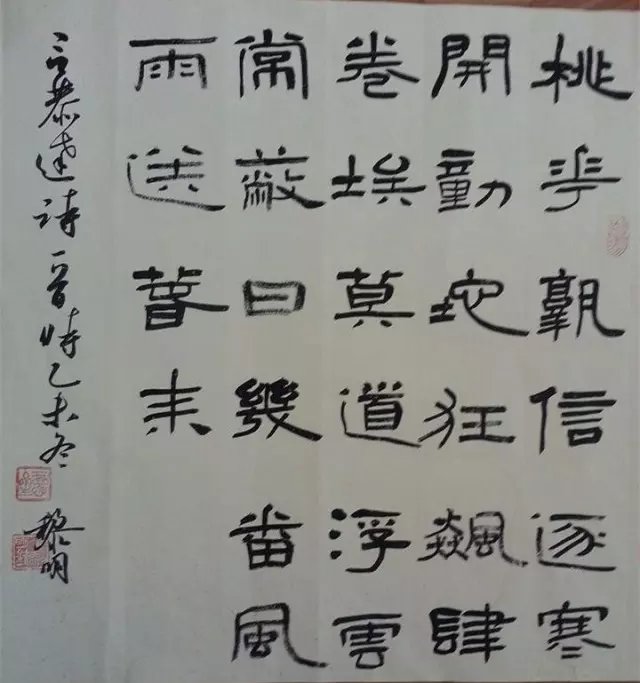 桃花報信逐寒
開動地狂飆肆
卷埃莫道浮雲
常蔽日幾番風
雨送春来
言恭達詩一首時乙未冬 黎明